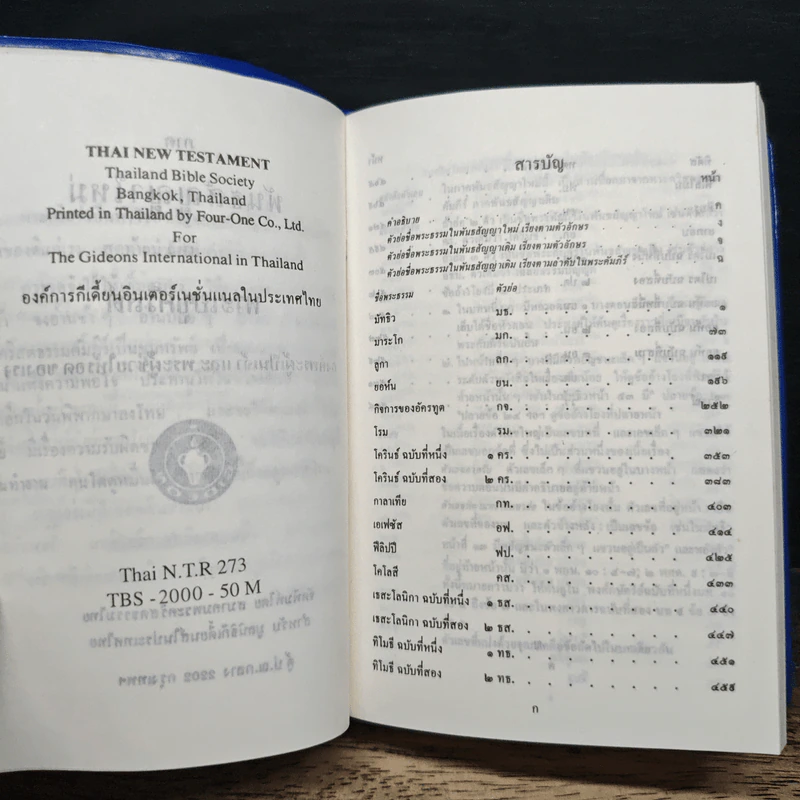 THAI NEW TESTAMENT
Thailand Bible Society
Bangkok, Thailand
Printed in Thailand by Four-One Co., Ltd.
For
The Gideons International in Thailand
องค์การกีเดี้ยนอินเตอร์เนชั่นแนลในประเทศไทย
Thai N.T.R 273
TBS - 2000 - 50 M
สารบัญ
หน้า
คำอธิบาย ค
ตัวย่อชื่อพระธรรมในพันธสัญญาใหม่ เรียงตามตัวอักษร ง
ตัวย่อชื่อพระธรรมในพันธสัญญาเดิม เรียงตามตัวอักษร จ
ตัวย่อชื่อพระธรรมในพันธสัญญาเดิม เรียงตามลำดับในพระคัมภีร์ ฉ
ชื่อพระธรรม ตัวย่อ
มัทธิว มธ. ๑
มาระโก มก. ๗๓
ลูกา ลก. ๑๑๕
ยอห์น ยน. ๑๙๐
กิจการของอัครทูต กจ. ๒๕๒
โรม รม. ๓๒๑
โครินธ์ ฉบับที่หนึ่ง ๑ คร. ๓๕๓
โครินธ์ ฉบับที่สอง ๒ คร. ๓๘๓
กาลาเทีย กท. ๔๐๓
เอเฟซัส อฟ. ๔๑๔
ฟีลิปปี ฟป. ๔๒๕
โคโลสี คส. ๔๓๓
เธสะโลนิกา ฉบับที่หนึ่ง ๑ ธส. ๔๔๐
เธสะโลนิกา ฉบับที่สอง ๒ ธส. ๔๔๗
ทิโมธี ฉบับที่หนึ่ง ๑ ทธ. ๔๕๑
ทิโมธี ฉบับที่สอง ๒ ทธ. ๔๕๙
ก